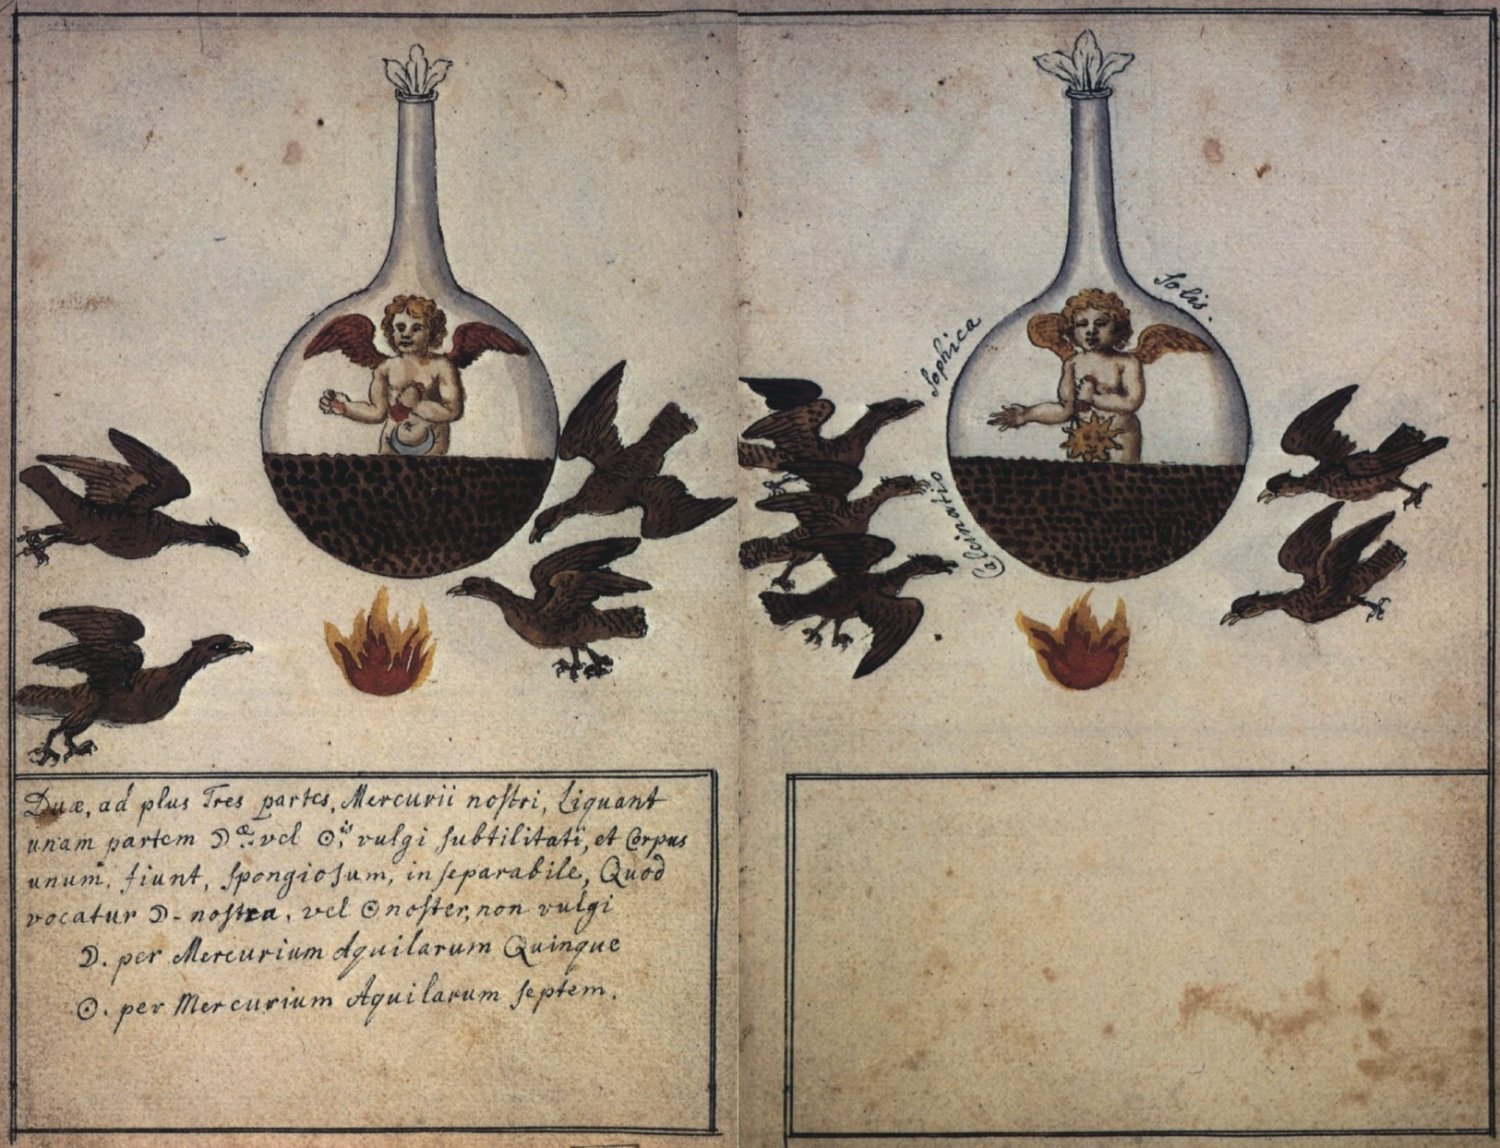 Duæ, ad plus Tres partes, Mercurii noſtri, Liquant
unam partem ☽æ: vel ☉is: vulgi ſubtilitati, et Corpus
unum, fiunt, ſpongioſum, inſeparabile, Quod
vocatur ☽- noſtra, vel ☉ noſter, non vulgi
☽. per Mercurium Aquilarum Quinque
☉. per Mercurium Aquilarum ſeptem.
Calcinatio Sophica Solis.